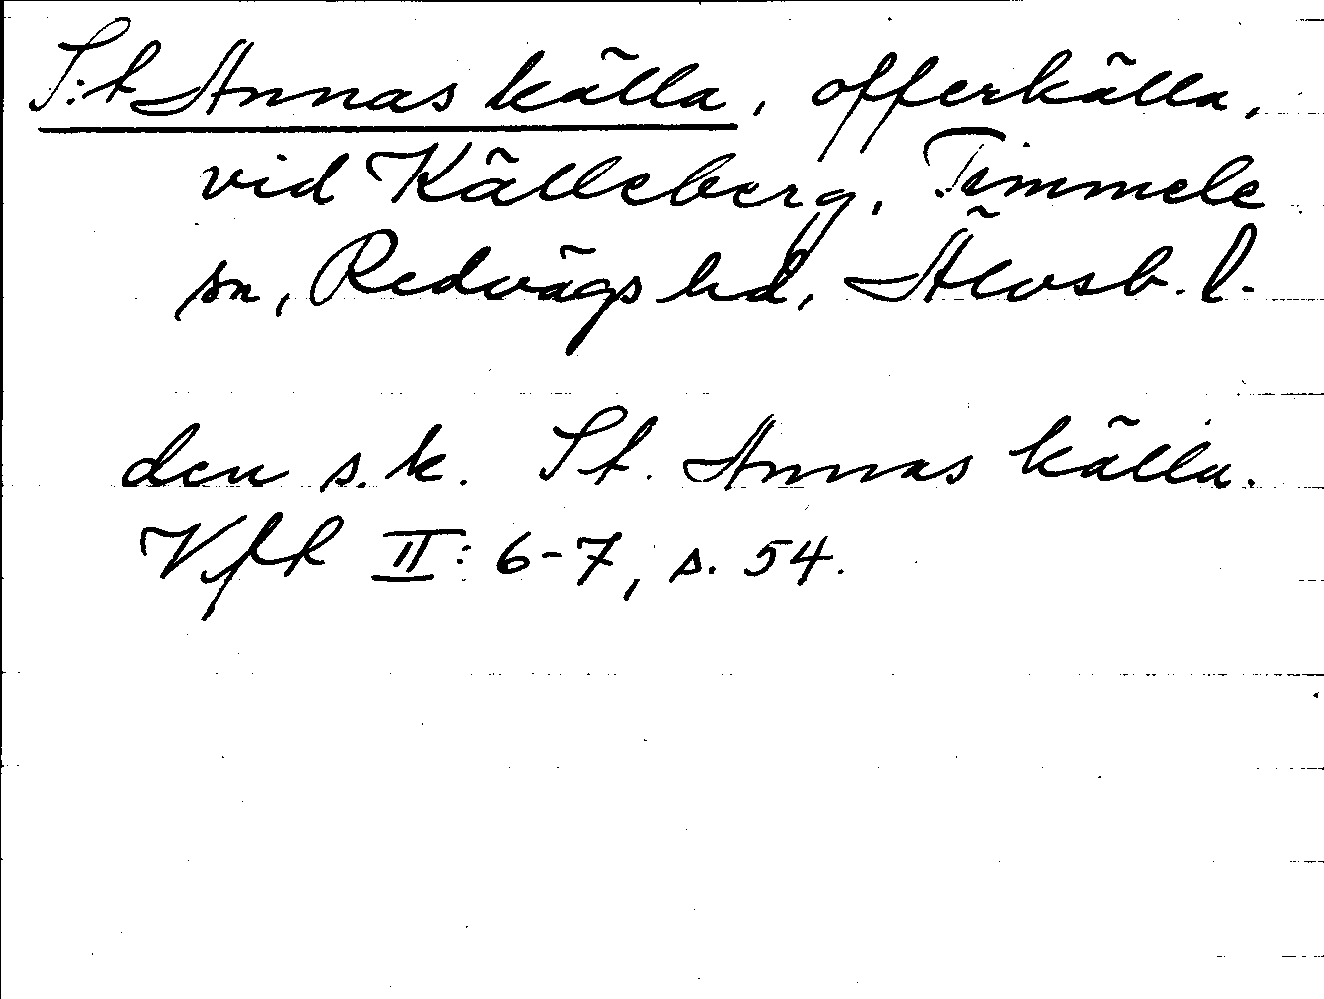 S:t Annas källa, offerkälla,
vid Källeberg, Timmele
sn, Redvägs hd, Älvsb. l.
den s.k. St. Annas källa.
VFR II: 6-7, s. 54.